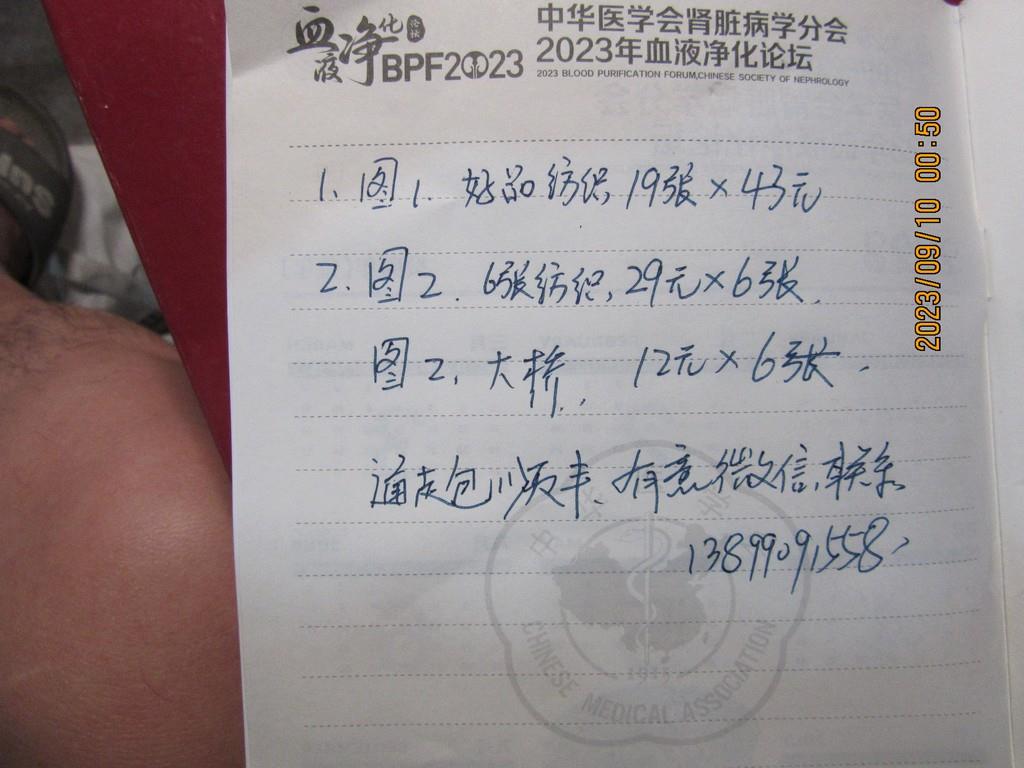 血液净化 论坛
BPF2023
中华医学会肾脏病学分会
2023年血液净化论坛
2023 BLOOD PURIFICATION FORUM,CHINESE SOCIETY OF NEPHROLOGY
2023/09/10 00:50
1、图1. 好品纺织, 19张×43元
2.图2. 6张纺织, 29元×6张.
图2, 大桥, 12元×6张.
通走包顺丰、有意微信,联系
13899091558
1915
CHINESE MEDICAL ASSOCIATION